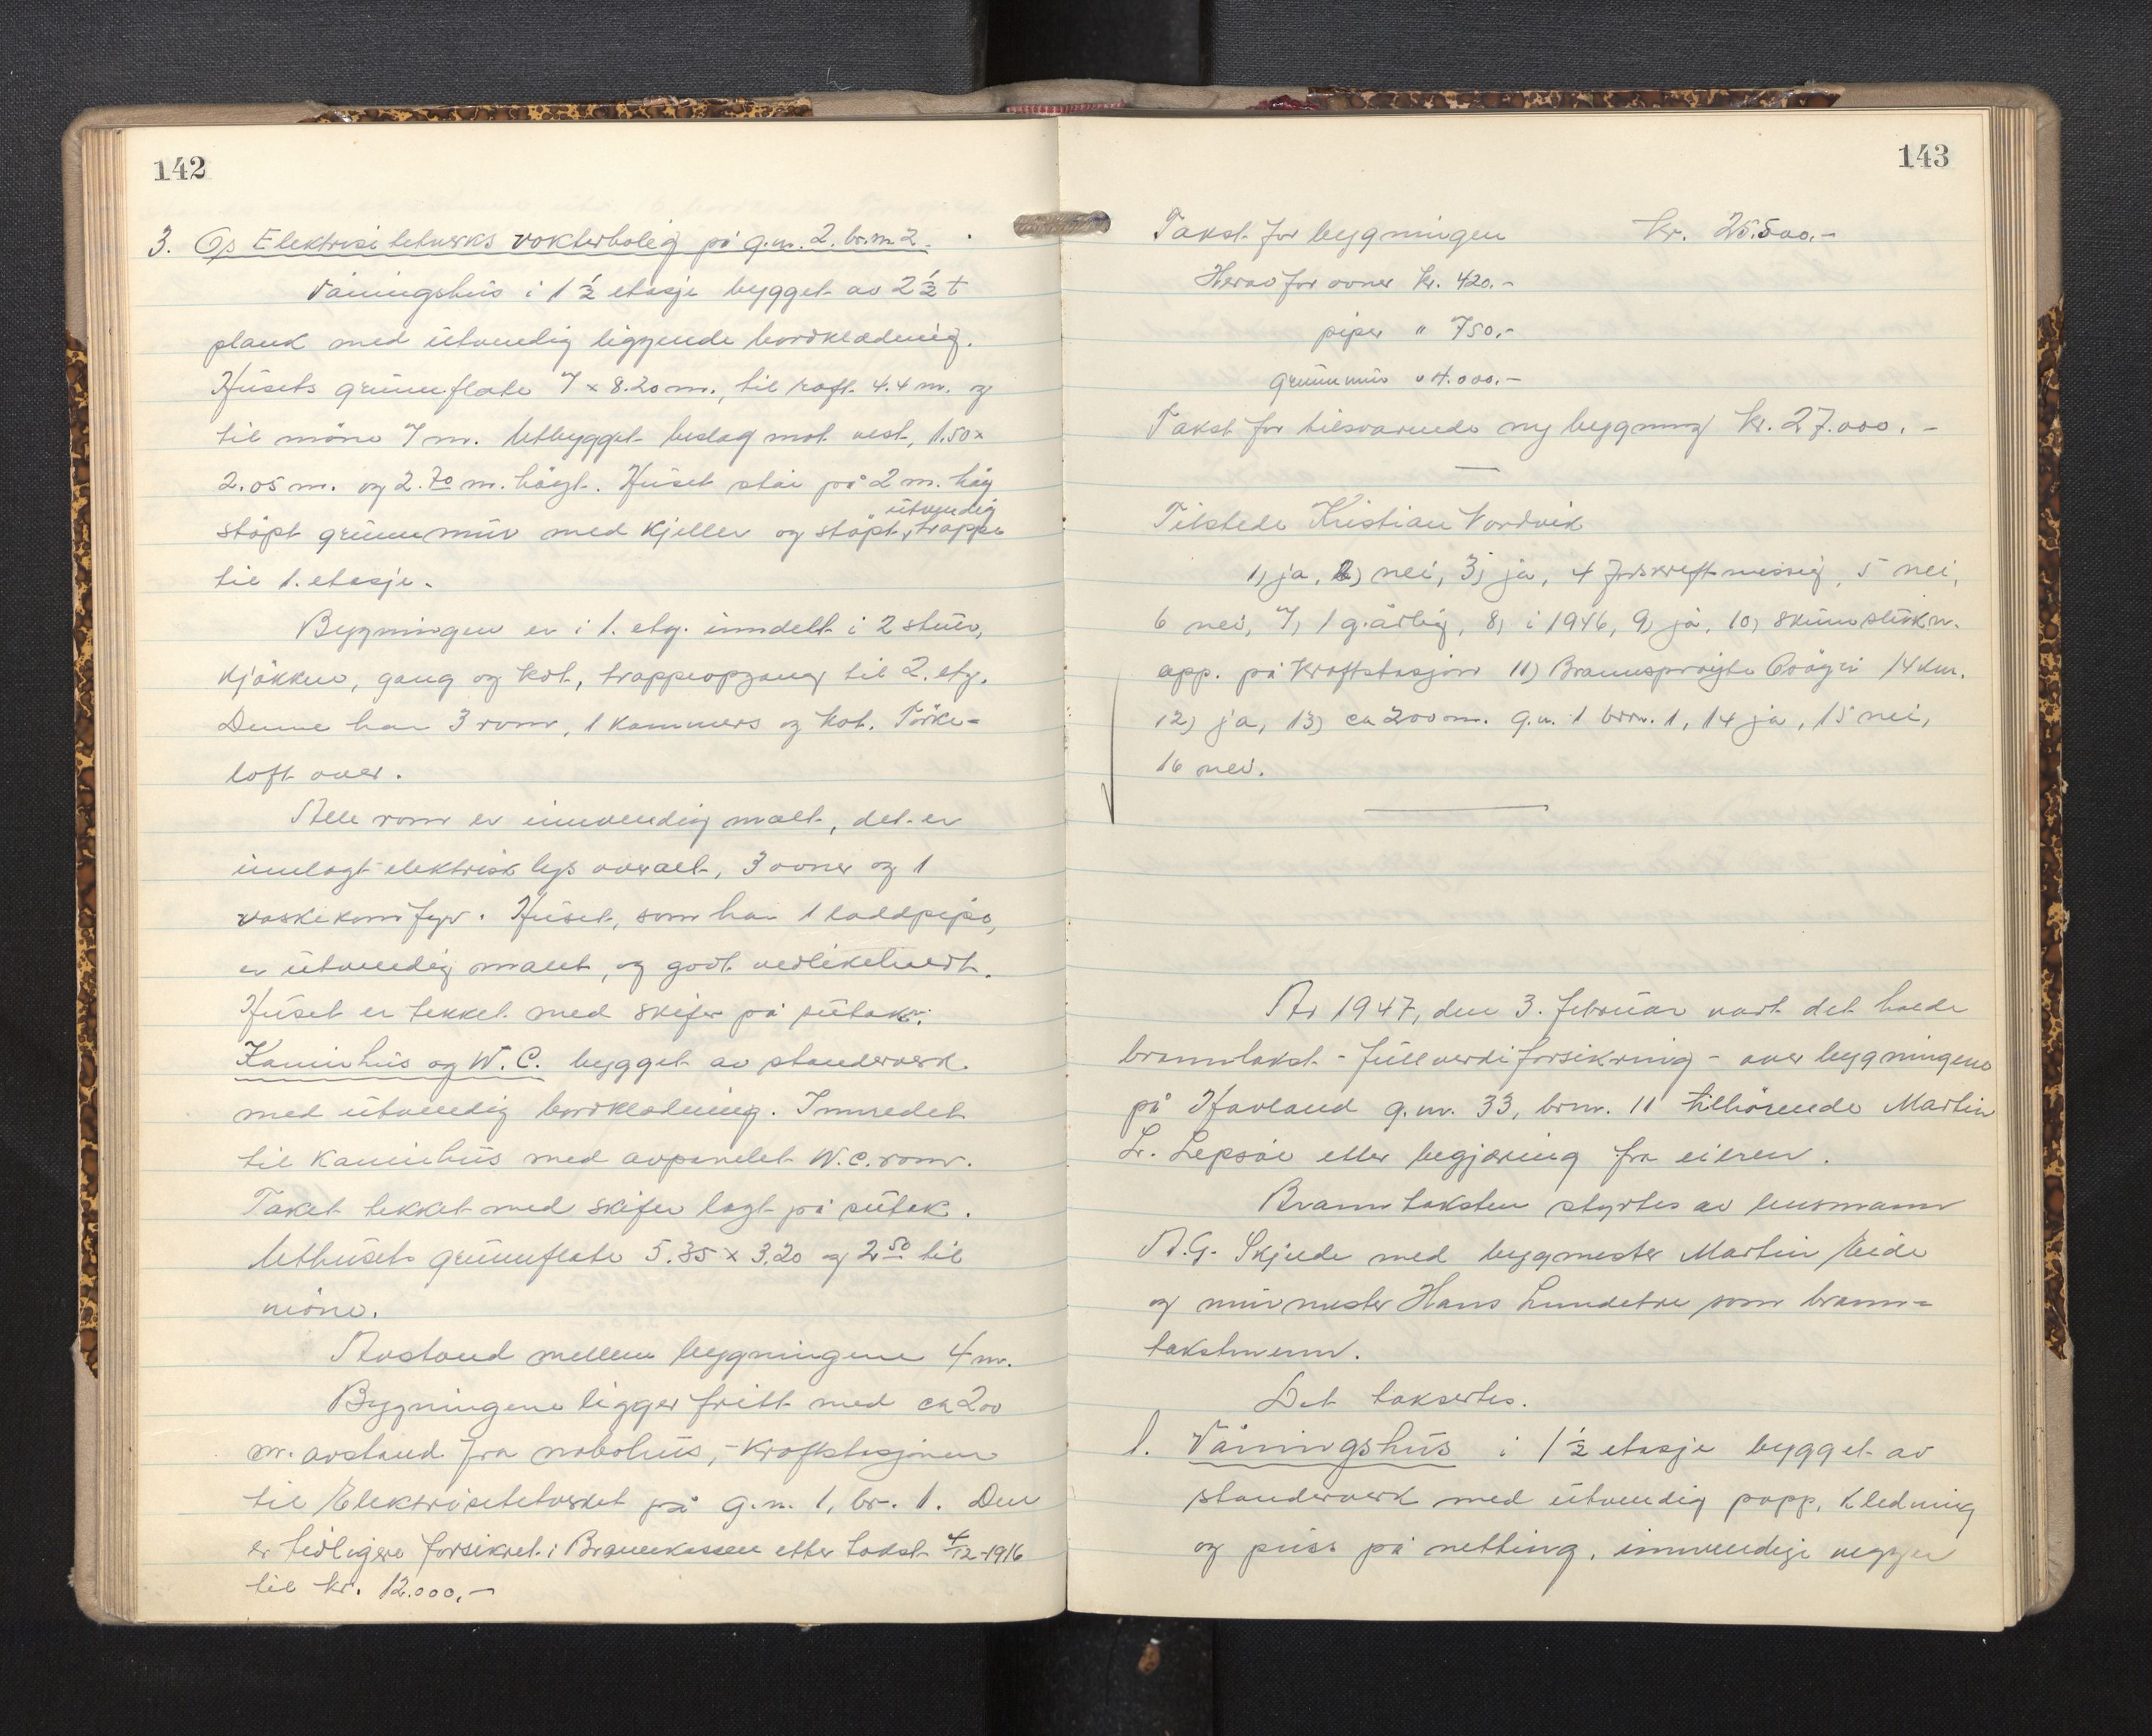 142
3. Os Elektrisitetverks vokterbolig på g.nr. 2. br.nr. 2.
Våningshus i 1 ½ etasje bygget av 2 ½ t
plank med utvendig liggende bordkledning.
Husets grunnflate 7 x 8.20 m., til raft 4.4 m. og
til möne 7 m. Utbygget beslag mot vest, 1.50 x
2.05 m. og 2.70 m. högt. Huset står på 2 m. höy
utvendig
stöpt grunnmur med kjeller og stöpt trappe
til 1. etasje.
Bygningen er i 1. etg. inndelt i 2 stuer,
kjökken, gang og kot, trappeopgang til 2. etg.
Denne har 3 rom, 1 kammers og kot. Törke-
loft over.
Alle rom er innvendig malt, det er
innlagt elektrisk lys overalt, 3 ovner og 1
vaskekomfyr. Huset, som har 1 loddpipe,
er utvendig malt, og godt vedlikeholdt.
Huset er tekket med skifer på sutak.
Kaminhus og W.C. bygget av stenderverk
med utvendig bordkledning. Innredet
til kaminhus med avpanelet W.C. rom.
Taket tekket med skifer lagt på sutak.
Uthusets grunnflate 5.35 x 3.20 og 2.50 til
möne.
Avstand mellem bygningene 4 m.
Bygningene ligger fritt med ca 200
m. avstand fra nabohus, - kraftstasjonen
til Elektrisitetsverket på g.n. 1, br. 1. Den
er tidligere forsikret i Brannkassen etter takst 4/12-1916
til kr. 12.000,-
143
Takst for bygningen kr. 25.500.-
Herav for ovner kr. 420.-
piper " 750.-
grunnmur " 4.000.-
Takst for tilsvarende ny bygning kr. 27.000.-
Tilstede Kristian Nordvik
1) ja, 2) nei, 3) ja, 4 forskriftmessig, 5 nei,
6 nei, 7) 1 g. årlig, 8) i 1946, 9) ja, 10) skumslukn.
app. på kraftstasjon 11) Brannspröyte Osöyri 14 km.
12) ja, 13) ca 200 m. g.n. 1 brn. 1, 14 ja, 15 nei,
16 nei.
År 1947, den 3. februar vart det halde
branntakst - fullverdiforsikring - over bygningene
på Havland g.nr. 33, brnr. 11 tilhörende Martin
Lr. Lepsöe etter begjæring fra eieren.
Branntaksten styrtes av lensmann
A.G. Skjelde med bygmester Martin Eide
og murmester Hans Lundetre som brann-
takstmenn.
Det taksertes.
1. Våningshus i 1 ½ etasje bygget av
stenderverk med utvendig papp, kledning
og puss på netting, innvendige vegger